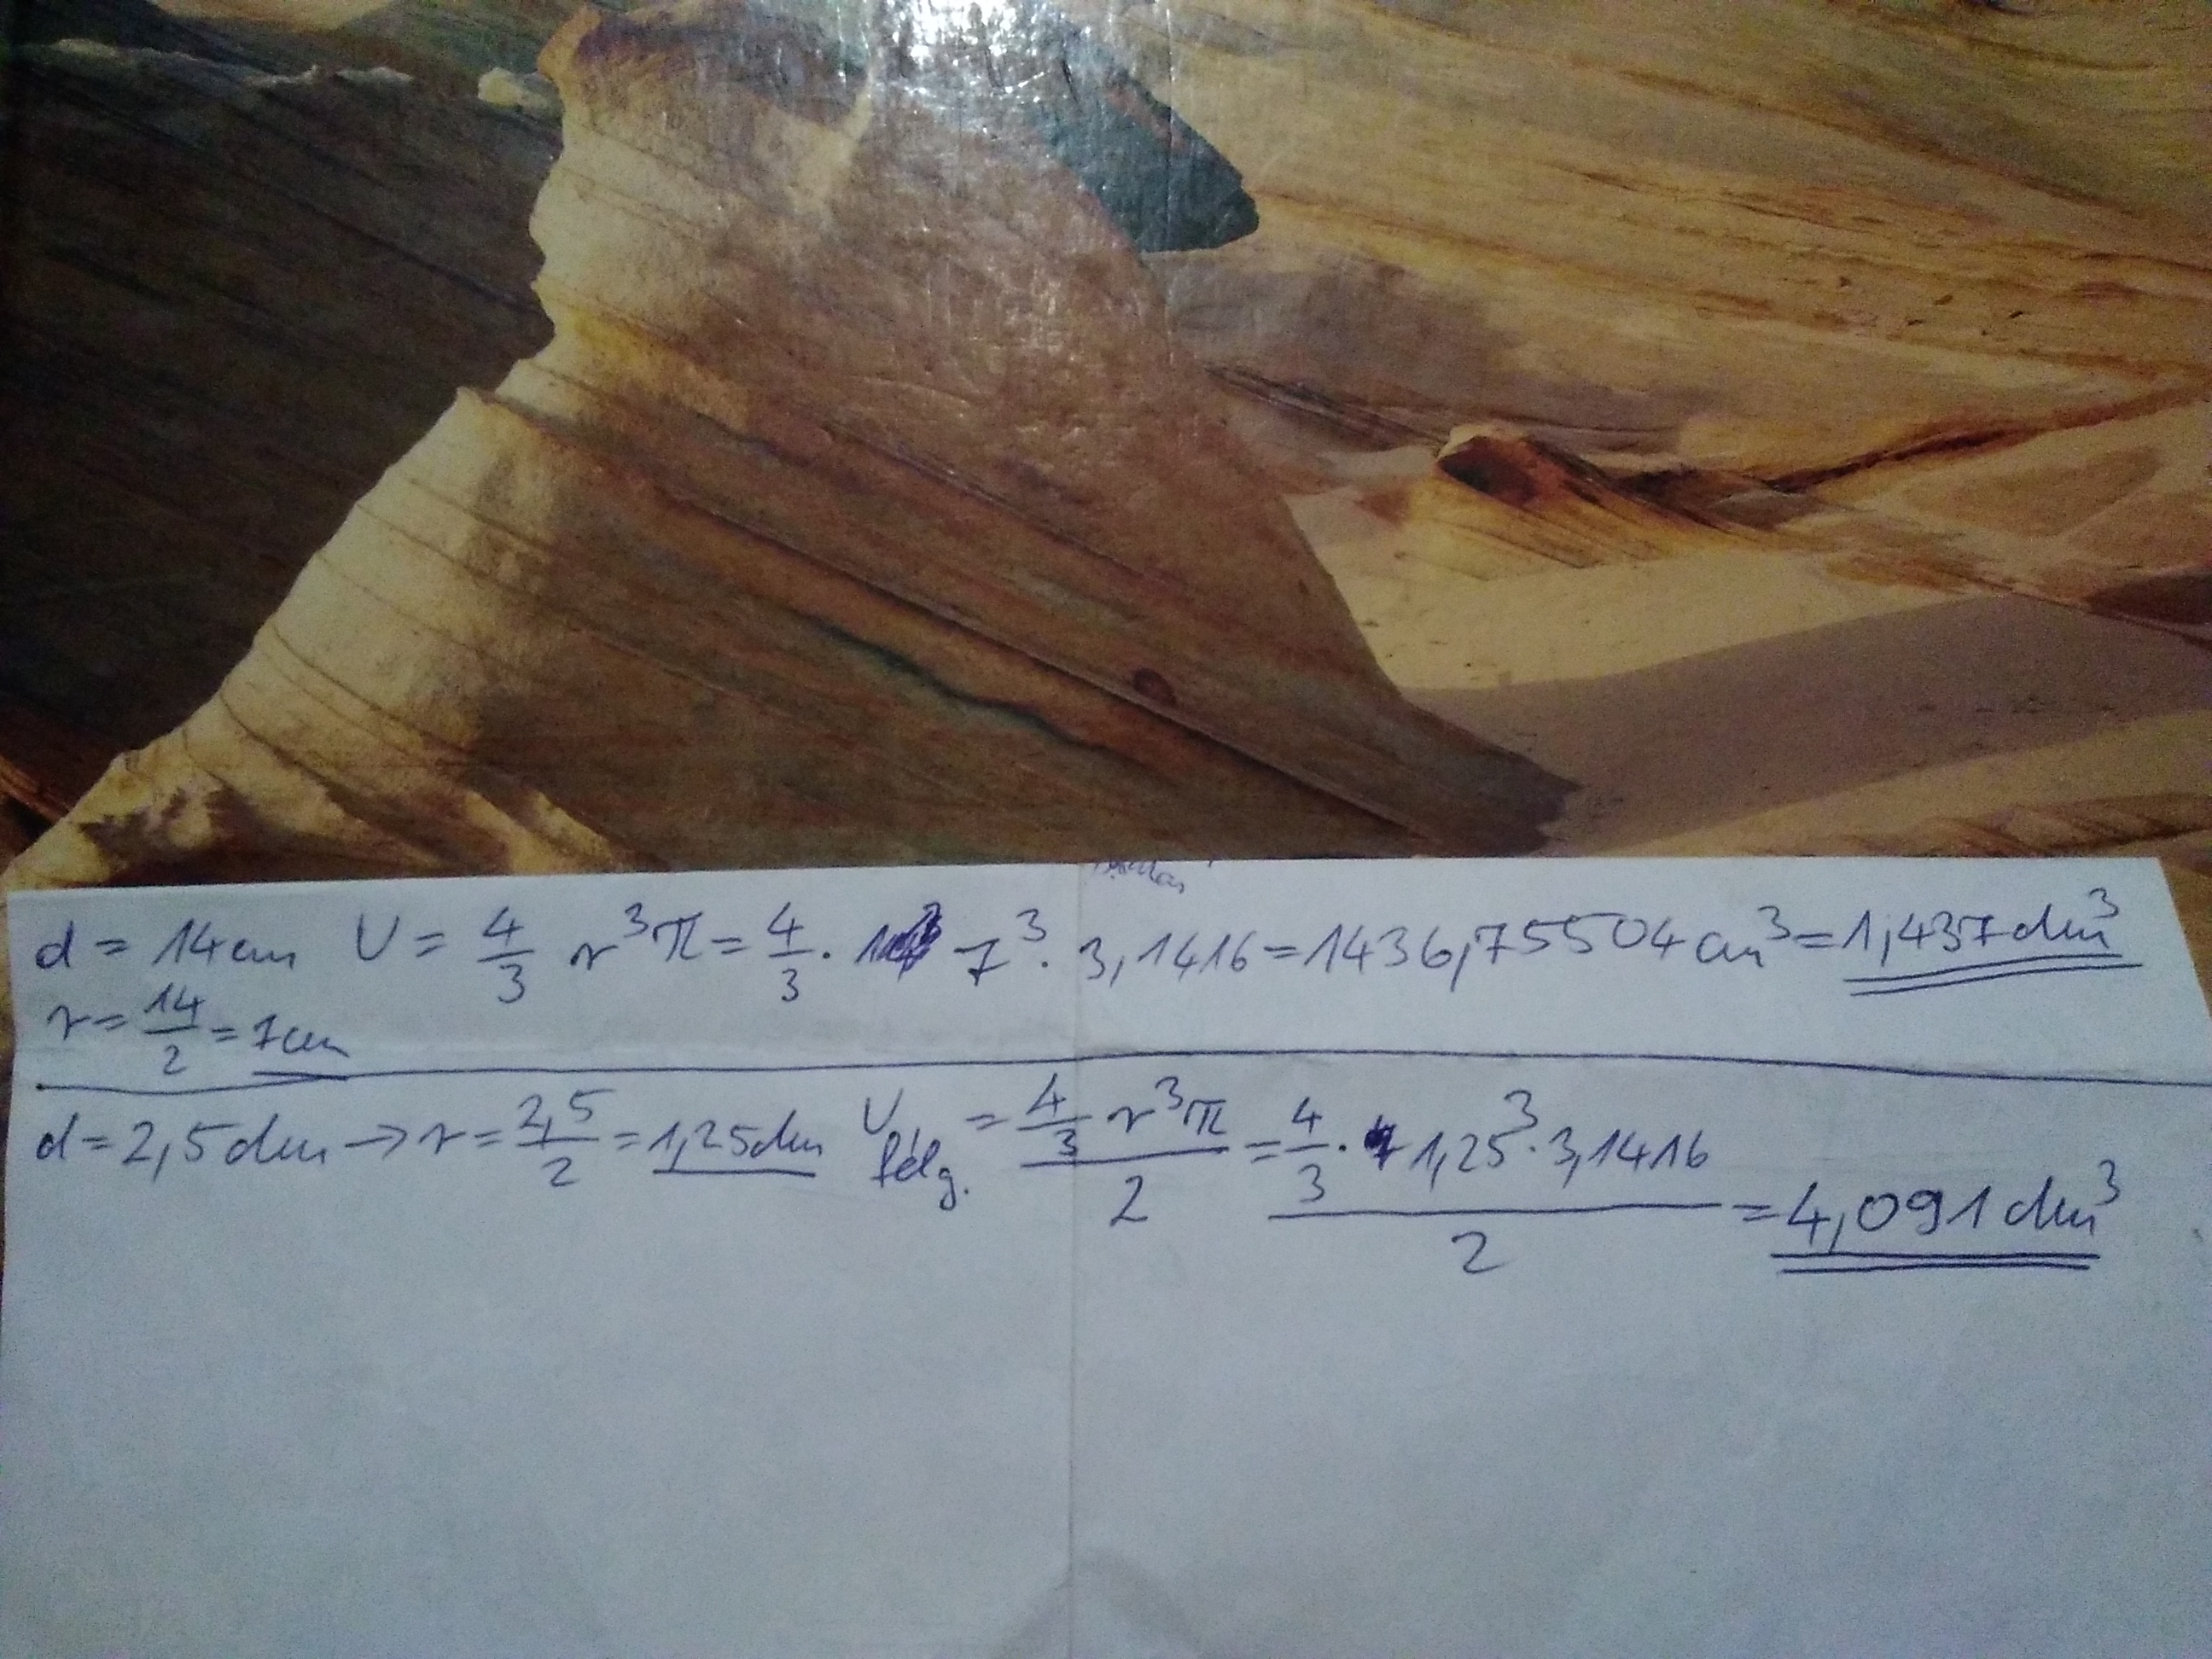 d = 14 cm V = 4/3 r³π = 4/3 · 7³ · 3,1416 = 1436,75504 cm³ = 1,437 dm³
r = 14/2 = 7 cm
d = 2,5 dm → r = 2,5/2 = 1,25 dm V félg. = (4/3 r³π)/2 = (4/3 · 1,25³ · 3,1416)/2 = 4,091 dm³